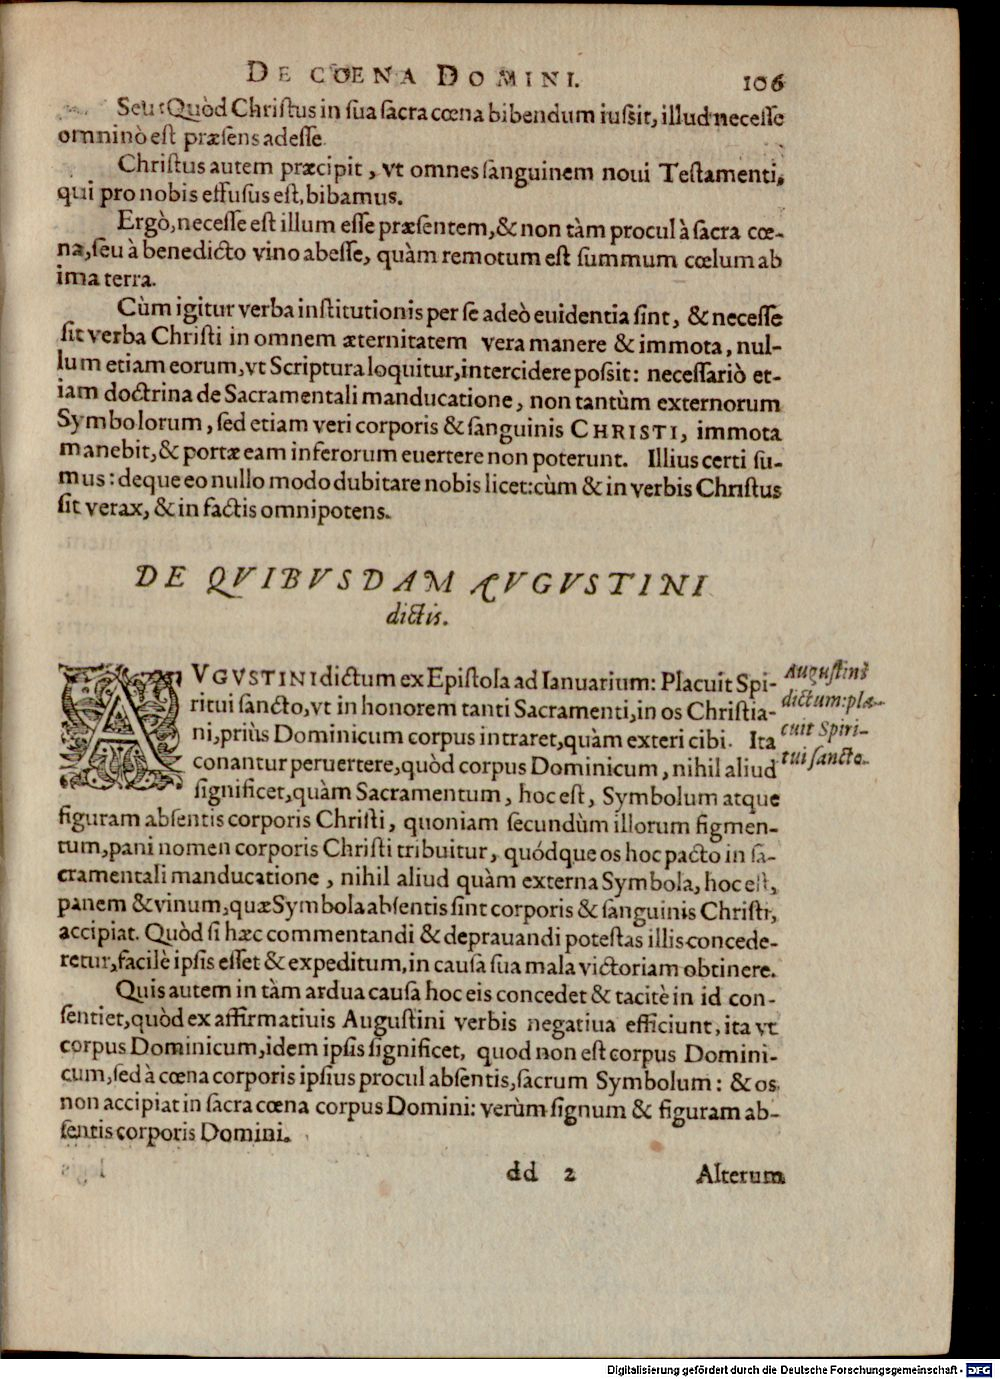 DE COENA DOMINI. 106
Seu: Quòd Christus in sua sacra cœna bibendum iussit, illud necesse
omninò est præsens adesse.
Christus autem præcipit, vt omnes sanguinem noui Testamenti,
qui pro nobis effusus est, bibamus.
Ergò, necesse est illum esse præsentem, & non tàm procul à sacra cœ-
na, seu à benedicto vino abesse, quàm remotum est summum cœlum ab
ima terra.
Cùm igitur verba institutionis per se adeò euidentia sint, & necesse
sit verba Christi in omnem æternitatem vera manere & immota, nul-
lum etiam eorum, vt Scriptura loquitur, intercidere possit: necessariò et-
iam doctrina de Sacramentali manducatione, non tantùm externorum
Symbolorum, sed etiam veri corporis & sanguinis CHRISTI, immota
manebit, & portæ eam inferorum euertere non poterunt. Illius certi su-
mus: deque eo nullo modo dubitare nobis licet: cùm & in verbis Christus
sit verax, & in factis omnipotens.
DE QVIBVSDAM AVGVSTINI
dictis.
AVGVSTINI dictum ex Epistola ad Ianuarium: Placuit Spi-
ritui sancto, vt in honorem tanti Sacramenti, in os Christia-
ni, priùs Dominicum corpus intraret, quàm exteri cibi. Ita
conantur peruertere, quòd corpus Dominicum, nihil aliud
significet, quàm Sacramentum, hoc est, Symbolum atque
figuram absentis corporis Christi, quoniam secundùm illorum figmen-
tum, pani nomen corporis Christi tribuitur, quódque os hoc pacto in sa-
cramentali manducatione, nihil aliud quàm externa Symbola, hoc est,
panem & vinum, quæ Symbola absentis sint corporis & sanguinis Christi,
accipiat. Quòd si hæc commentandi & deprauandi potestas illis concede-
retur, facilè ipsis esset & expeditum, in causa sua mala victoriam obtinere.
Quis autem in tàm ardua causa hoc eis concedet & tacitè in id con-
sentiet, quòd ex affirmatiuis Augustini verbis negatiua efficiunt, ita vt
corpus Dominicum, idem ipsis significet, quod non est corpus Domini-
cum, sed à cœna corporis ipsius procul absentis, sacrum Symbolum: & os
non accipiat in sacra cœna corpus Domini: verùm signum & figuram ab-
sentis corporis Domini.
Augustini
dictum: pla-
cuit Spiri-
tui sancto.
dd 2 Alterum
Digitalisierung gefördert durch die Deutsche Forschungsgemeinschaft - DFG